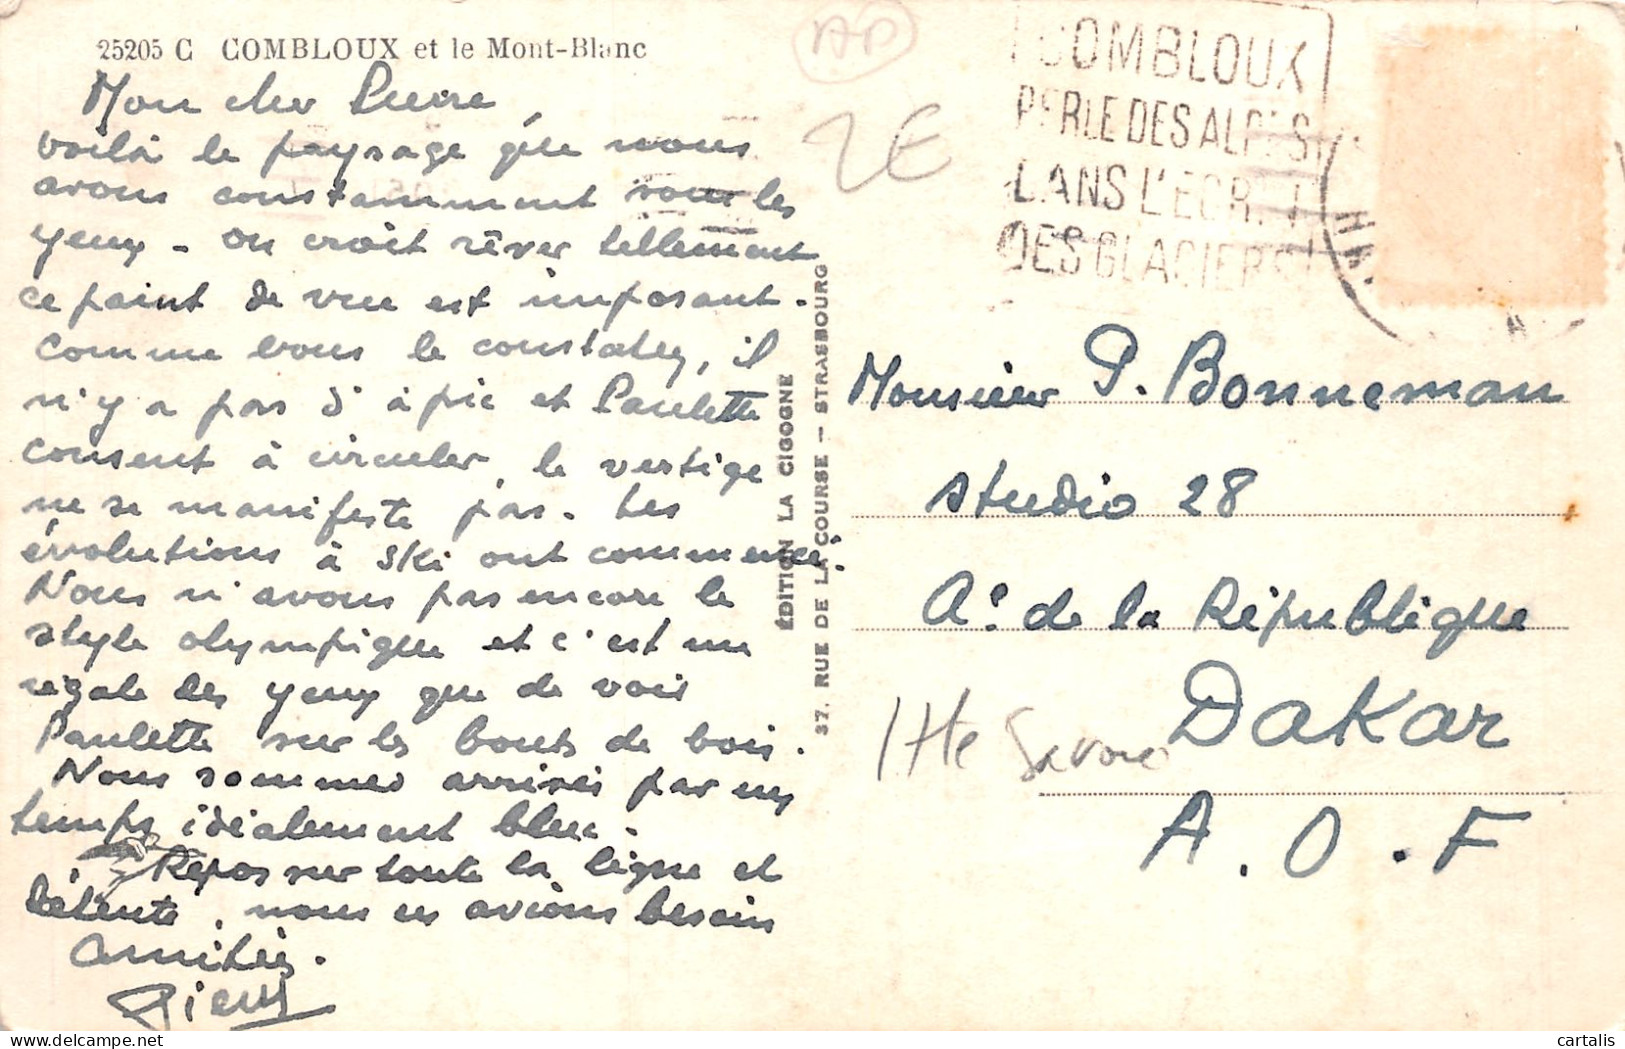 25205 C COMBLOUX et le Mont-Blanc
Mon cher Pierre
voilà le paysage que nous
avons constamment sous les
yeux - on croit rêver tellement
ce point de vue est imposant.
Comme vous le constatez, il
n'y a pas d'à pic et Paulette
consent à circuler, le vertige
ne se manifeste pas. Les
évolutions à ski ont commencé.
Nous n'avons pas encore le
style olympique et c'est un
régale des yeux que de voir
Paulette sur les bouts de bois.
Nous sommes arrivés par un
temps idéalement bleu.
Repos sur toute la ligne et
détente, nous en avions besoin
Amitiés.
ÉDITION LA CIGOGNE
37, RUE DE LA COURSE - STRASBOURG
AP
2E
COMBLOUX
PERLE DES ALPES
DANS L'ECRIN
DES GLACIERS
Monsieur P. Bonneman
studio 28
Ae. de la République
DAKAR
A.O.F
Hte Savoie
cartalis